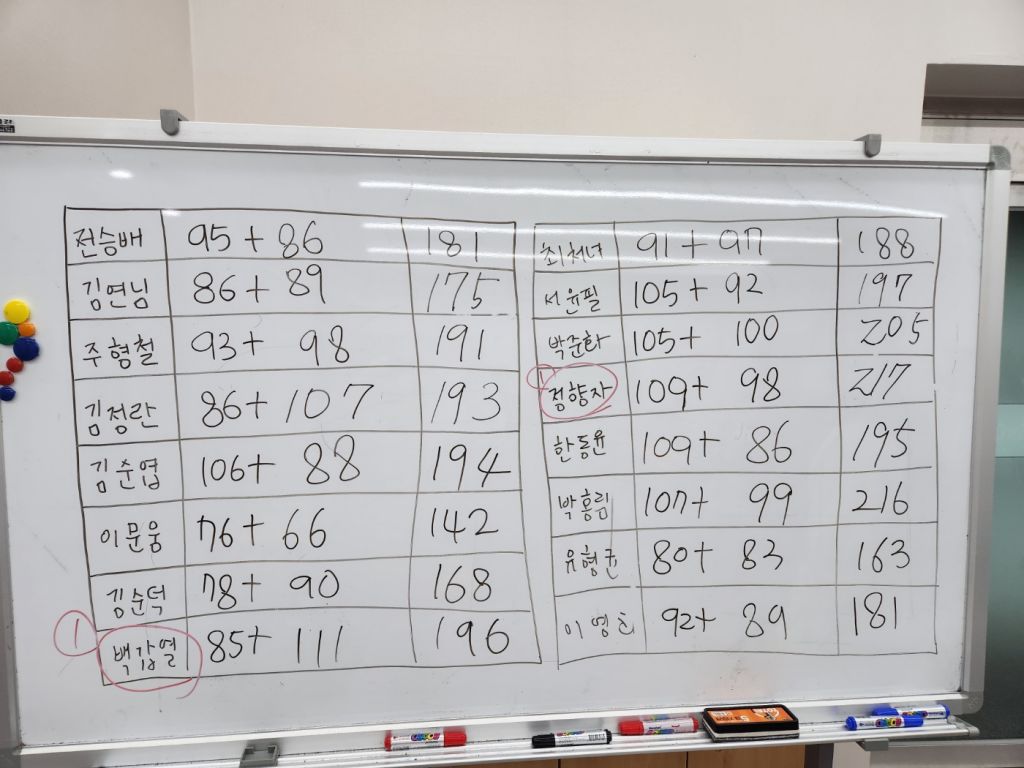 전승배 95 + 86 181
김연님 86 + 89 175
주형철 93 + 98 191
김정란 86 + 107 193
김준엽 106 + 88 194
이문웅 76 + 66 142
김순덕 78 + 90 168
① 백갑열 85 + 111 196
최처녀 91 + 97 188
서윤필 105 + 92 197
박준화 105 + 100 205
① 정향자 109 + 98 217
한동윤 109 + 86 195
박홍림 107 + 99 216
유형균 80 + 83 163
이영 92 + 89 181